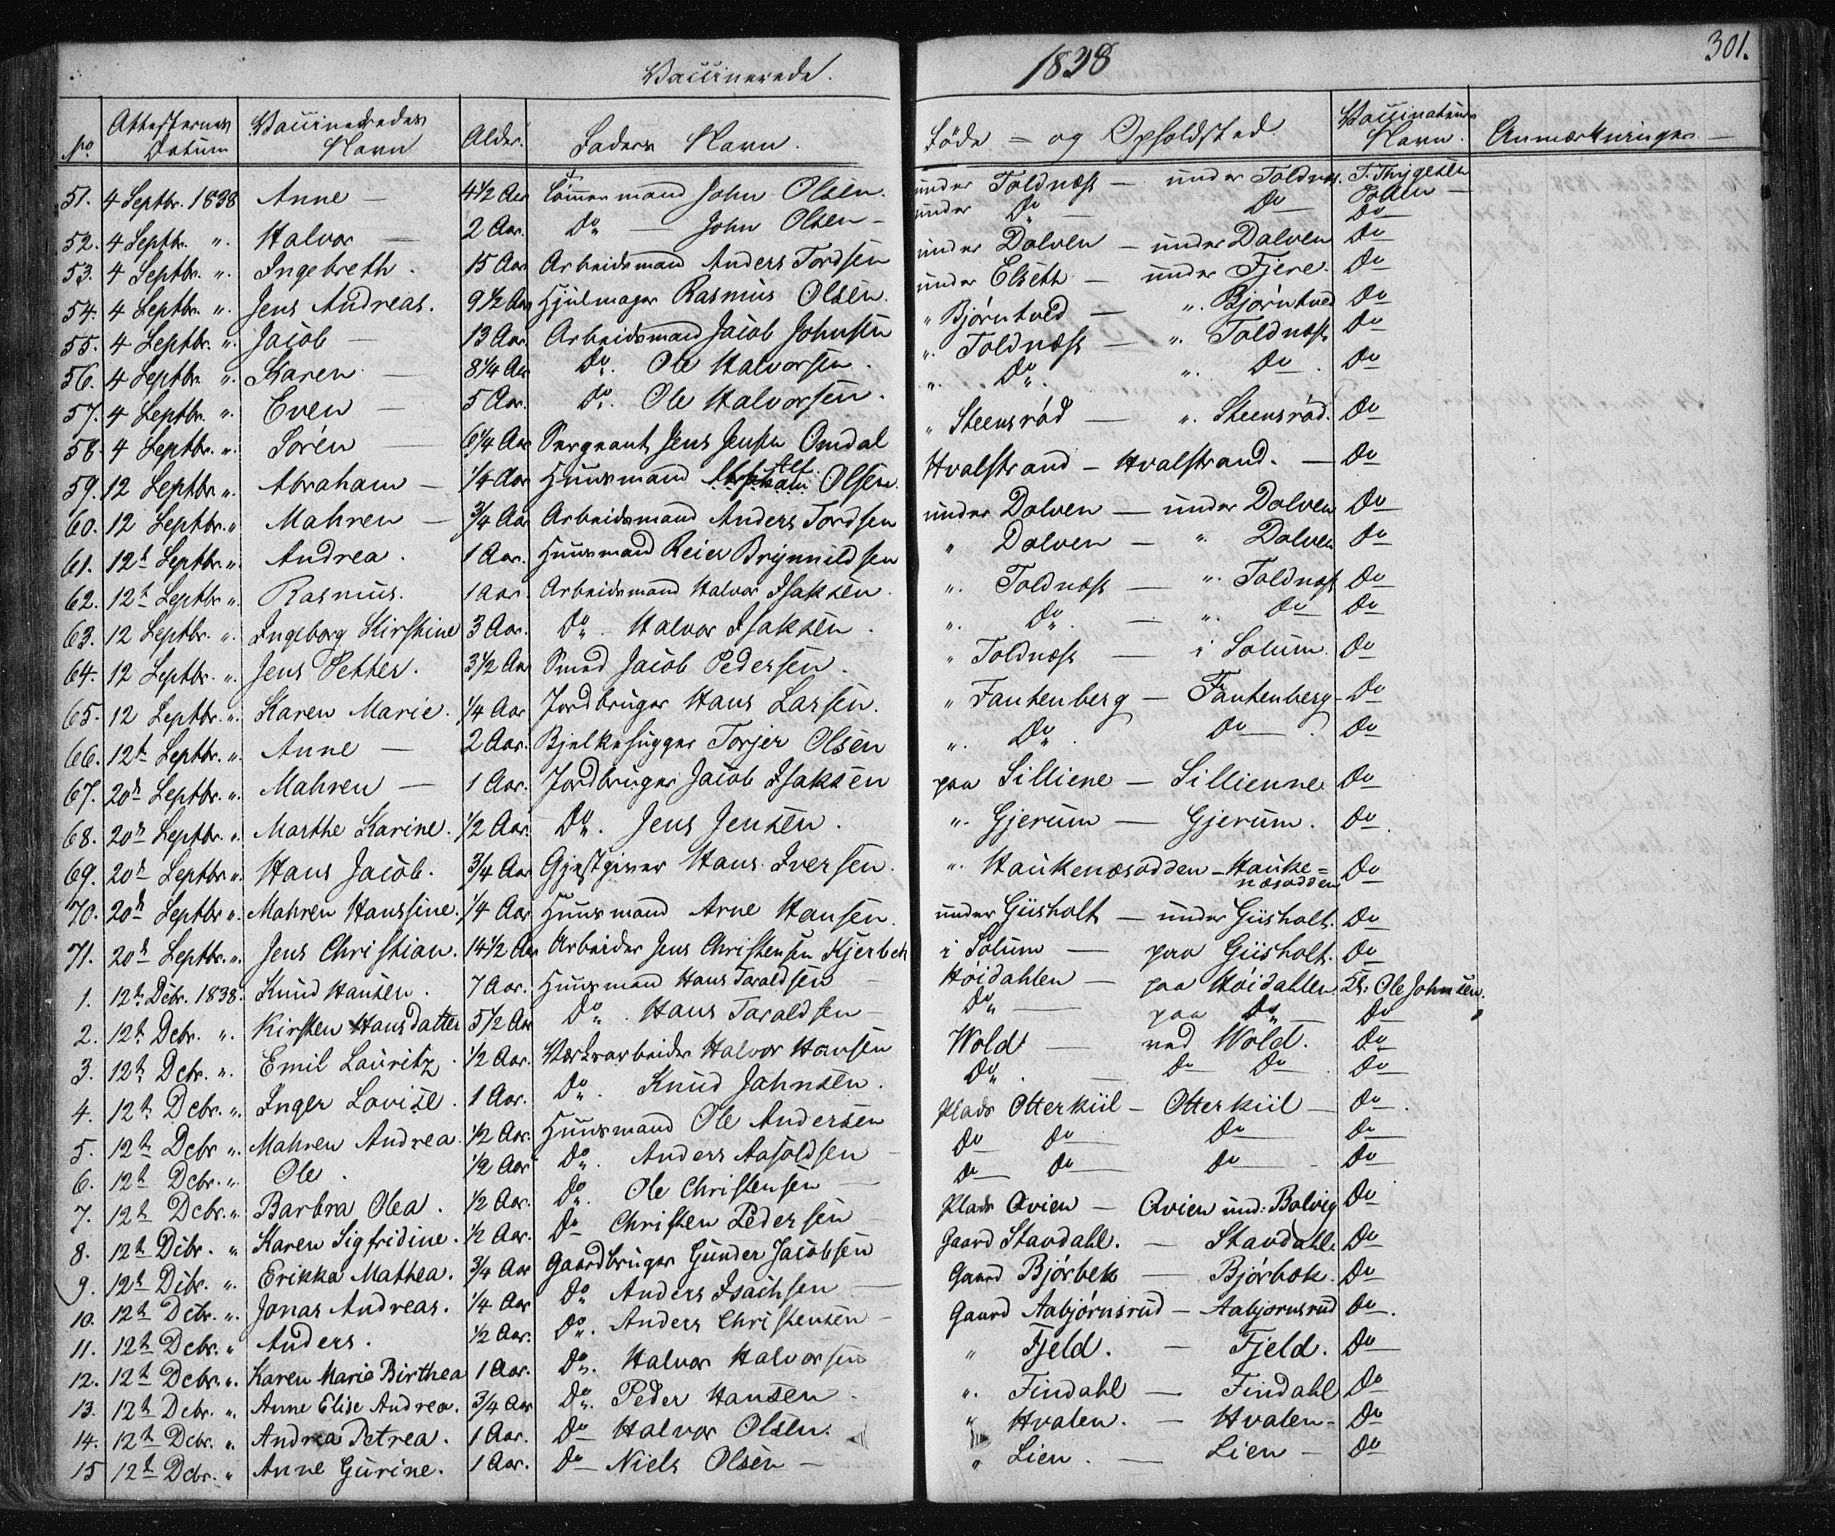 Vaccinerede. 1838 301.
No Attesternes Datum Vaccineredes Navn Alder. Faders Navn. Føde = og Opholdsted. Vaccinateurs Navn. Anmærkninger
51. 4 Septbr. 1838 Anne — 4 1/2 Aar Tømmermand John Olsen. under Toldnæss — under Toldnæs. T. Thygesen
52. 4 Septbr. „ Halvor — 2 Aar. Do — John Olsen — under Do — Do — Do
53. 4 Septbr. „ Ingebreth. 15 Aar Arbeidsmand Anders Tordsen under Dalven — under Dalven Do
54. 4 Septbr. „ Jens Andreas. 9 1/2 Aar Hjulmager Rasmus Olsen. under Elseth — under Fjere. Do
55. 4 Septbr. „ Jacob — 13 Aar. Arbeidsmand Jacob Johnsen „ Bjørntved — „ Bjørntved Do
56. 4 Septbr. „ Karen — 8 1/4 Aar Do. Ole Halvorsen. „ Toldnæss — „ Toldnæss Do
57. 4 Septbr. „ Even — 5 Aar. Do. Ole Halvorsen. „ Do. „ Do. Do
58. 4 Septbr. „ Sørén — 6 1/4 Aar Sergeant Jens Jensen Omdal „ Steensrød — „ Steensrød. Do
59. 12 Septbr. „ Abraham — 1/4 Aar Huusmand Olsen. Hvalstrand — Hvalstrand. — Do
60. 12 Septbr. „ Mahren — 3/4 Aar Arbeidsmand Anders Tordsen under Dalven — under Dalven Do
61. 12t Septbr. „ Andrea. 1 Aar. Huusmand Reier Brynnildsen „ Dalven — „ Dalven Do
62. 12t Septbr „ Rasmus. 1 Aar. Arbeidsmand Halvor Isaksen. „ Toldnæss — „ Toldnæss Do
63. 12 Septbr. „ Ingeborg Kirstine 3 Aar. Do. Halvor Isaksen. „ Do. — „ Do Do
64. 12 Septbr. „ Jens Petter. 3 1/2 Aar Smed Jacob Pedersen. „ Toldnæss — i Solum. Do
65. 12 Septbr. „ Karen Marie. 1/4 Aar Jordbruger Hans Larsen. „ Fantenberg — Fantenberg — Do
66. 12t Septbr. „ Anne — 2 Aar. Bjelkehugger Torjer Olsen „ Do. Do. Do
67. 20de Septbr. „ Mahren — 1 Aar. Jordbruger Jacob Isaksen paa Silliene — Sillienne Do
68. 20de Septbr. „ Marthe Karine. 1/2 Aar. Do. Jens Jensen. „ Gjerum — Gjerum. Do.
69. 20de Septbr „ Hans Jacob. 3/4 Aar Gjestgiver Hans Iversen. „ Haukenæsodden — Hauke=næsodden Do
70. 20de Septbr „ Mahren Hanssine. 1/4 Aar Huusmand Arne Hansen. under Giisholt — under Giisholt. Do
71. 20de Septbr. „ Jens Christian. 14 1/2 Aar Arbeider Jens Christensen Kjerbek i Solum — paa Giisholt. Do
1. 12te Dcbr. 1838. Knud Hansen. 7 Aar. Huusmand Hans Taraldsen — Høidahlen — paa Høidahlen. Ole Johnsen.
2. 12te Dcbr. „ Kirsten Hansdatter 5 1/2 Aar Do. Hans Taraldsen — Do — paa Do — Do
3. 12te Dcbr. „ Emil Lauritz. 1/2 Aar. Værksarbeider Halvor Hansen Wold — ved Wold. Do
4. 12te Dcbr. „ Inger Lovise. 1 Aar. Do. Knud Jahnsen. Do. — Do Do — Do
5. 12te Dcbr. „ Mahren Andrea. 1/2 Aar. Huusmand Ole Andersen Plads Otterkiil — Otterkiil — Do.
6. 12te Dcbr. „ Ole. 1/2 Aar Do. Anders Aasoldsen — Do Do Do Do
7. 12te Dcbr. „ Barbra Olea. 1/2 Aar. Do. Ole Christensen — Do Do Do Do
8. 12te Dcbr. „ Karen Sigfridine. 1/2 Aar. Do Christen Pedersen — Plads Qvien — Qvien und: Bolvig Do
9. 12te Dcbr. „ Erikka Mathea. 3/4 Aar Gaardbruger Gunder Jacobsen Gaard Stavdahl. — Stavdahl. Do
10. 12te Dcbr. „ Jonas Andreas. 1/4 Aar Do Anders Isachsen — Gaard Bjørbek — Bjørbæk. Do
11. 12te Dcbr. „ Anders. 1/2 Aar. Do. Anders Christensen — Gaard Aabjørnsrud — Aabjornsrud Do.
12. 12te Dcbr. „ Karen Marie Birthea 1 Aar. Do. Halvor Halvorsen „ Fjeld. — Fjeld. Do
13. 12te Dcbr. „ Anne Elise Andrea. 3/4 Aar Do. Peder Hansen. „ Findahl — Findahl Do
14. 12te Dcbr. „ Andrea Petrea. 1 Aar. Do Halvor Olsen. „ Hvalen. — Hvalen — Do
15 12te Dcbr. „ Anne Gurine. 1 Aar. Do — Niels Olsen — „ Lien. — Lien — Do